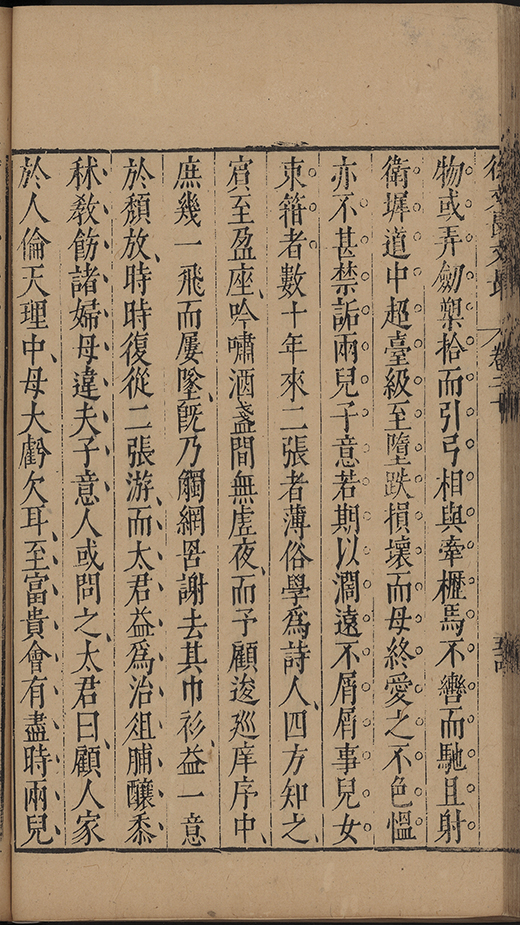 徐文長文集 卷二十
物或弄劒槊拾而引弓相與牽櫪馬不轡而馳且射
衛墀道中超臺級至墮跌損壞而母終愛之不色慍
亦不甚禁詬兩兒子意若期以濶遠不屑屑事兒女
束箝者數十年來二張者薄俗學爲詩人四方知之
賔至盈座吟嘯酒盞間無虛夜而予顧逡廵庠序中
庶幾一飛而屢墜旣乃觸網罟謝去其巾衫益一意
於頹放時時復從二張游而太君益爲治俎脯釀黍
秫敎飭諸婦母違夫子意人或問之太君曰顧人家
於人倫天理中母大虧欠耳至富貴會有盡時兩兒